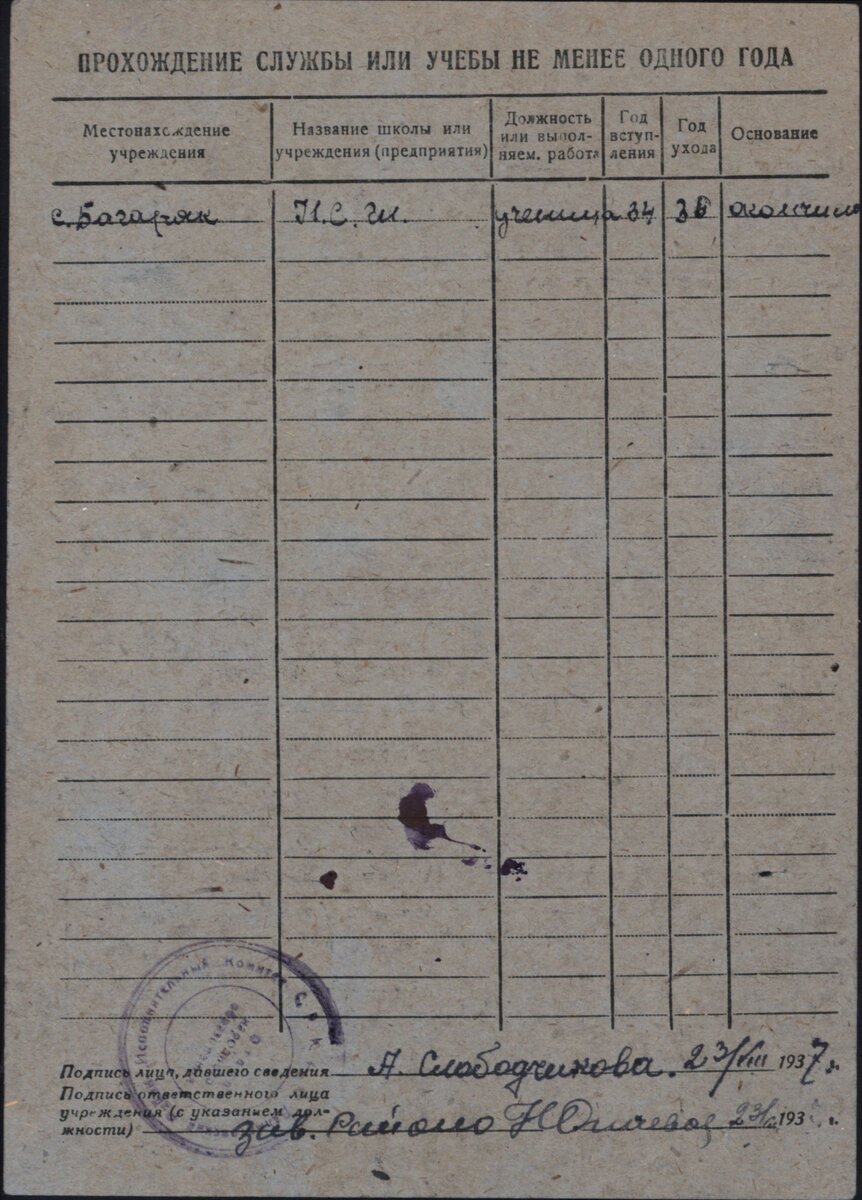 ПРОХОЖДЕНИЕ СЛУЖБЫ ИЛИ УЧЕБЫ НЕ МЕНЕЕ ОДНОГО ГОДА
Местонахождение учреждения
Название школы или учреждения (предприятия)
Должность или выполняем. работа
Год вступления
Год ухода
Основание
с. Багаряк Н.С.Ш. ученица 34 36 окончила
Исполнительный Комитет
Подпись лица, давшего сведения А. Слободчикова. 23/VIII 1937 г.
Подпись ответственного лица
учреждения (с указанием дол-
жности) зав. Районо 193 г.